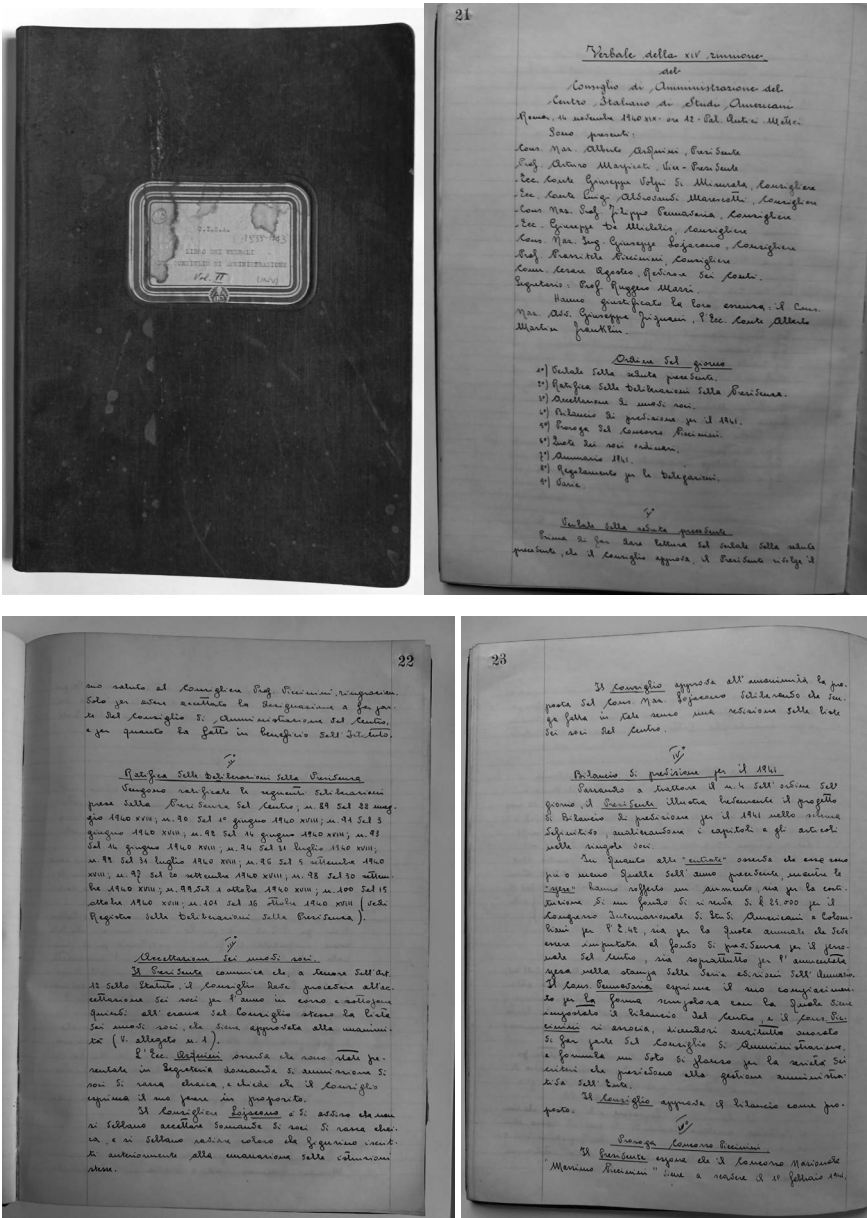 C.I.S.A.
LIBRO DEI VERBALI
CONSIGLIO DI AMMINISTRAZIONE
Vol. II
21
Verbale della XIV riunione
del
Consiglio di Amministrazione del
Centro Italiano di Studi Americani
Roma, 14 novembre 1940 XIX - ore 12 - Pal. Antici Mattei
Sono presenti:
Cons. Naz. Alberto Asquini, Presidente
Prof. Arturo Marpicati, Vice-Presidente
Ecc. Conte Giuseppe Volpi di Misurata, Consigliere
Ecc. Conte Luigi Aldrovandi Marescotti, Consigliere
Cons. Naz. Prof. Filippo Pennavaria, Consigliere
Ecc. Giuseppe De Michelis, Consigliere
Cons. Naz. Ing. Giuseppe Lojacono, Consigliere
Prof. Prassitele Piccinini, Consigliere
Comm. Cesare Agosteo, Revisore dei Conti.
Segretario: Prof. Ruggero Mazzi.
Hanno giustificato la loro assenza: il Cons.
Naz. Avv. Giuseppe Frignani, l'Ecc. Conte Alberto
Martin Franklin.
Ordine del giorno
1°) Verbale della seduta precedente.
2°) Ratifica delle Deliberazioni della Presidenza.
3°) Accettazione di nuovi soci.
4°) Bilancio di previsione per il 1941.
5°) Proroga del Concorso Piccinini.
6°) Quote dei soci ordinari.
7°) Annuario 1941.
8°) Regolamento per le Delegazioni.
9°) Varie.
I°
Verbale della seduta precedente
Prima di far dare lettura del verbale della seduta
precedente, che il Consiglio approva, il Presidente rivolge il
22
suo saluto al Consigliere Prof. Piccinini, ringrazian-
dolo per avere accettato la designazione a far par-
te del Consiglio di Amministrazione del Centro,
e per quanto ha fatto in beneficio dell'Istituto.
II°
Ratifica delle Deliberazioni della Presidenza
Vengono ratificate le seguenti deliberazioni
prese dalla Presidenza del Centro: n. 89 del 22 mag-
gio 1940 XVIII; n. 90 del 1° giugno 1940 XVIII; n. 91 del 3
giugno 1940 XVIII; n. 92 del 14 giugno 1940 XVIII; n. 93
del 14 giugno 1940 XVIII; n. 94 del 31 luglio 1940 XVIII;
n. 95 del 31 luglio 1940 XVIII; n. 96 del 5 settembre 1940
XVIII; n. 97 del 20 settembre 1940 XVIII; n. 98 del 30 settem-
bre 1940 XVIII; n. 99 del 1 ottobre 1940 XVIII; n. 100 del 15
ottobre 1940 XVIII; n. 101 del 16 ottobre 1940 XVIII (vedi
Registro delle Deliberazioni della Presidenza).
III°
Accettazione dei nuovi soci.
Il Presidente comunica che, a tenore dell'Art.
12 dello Statuto, il Consiglio deve procedere all'ac-
cettazione dei soci per l'anno in corso e sottopone
quindi all'esame del Consiglio stesso la lista
dei nuovi soci, che viene approvata alla unanimi-
tà (V. allegato n. 1).
L'Ecc. Asquini osserva che sono state pre-
sentate in Segreteria domande di ammissione di
soci di razza ebraica, e chiede che il Consiglio
esprima il suo parere in proposito.
Il Consigliere Lojacono è di avviso che non
si debbano accettare domande di soci di razza ebrai-
ca, e si debbano radiare coloro che figurino iscrit-
ti anteriormente alla emanazione delle istruzioni
stesse.
23
Il Consiglio approva all'unanimità la pro-
posta del Cons. Naz. Lojacono deliberando che ven-
ga fatta in tale senso una revisione delle liste
dei soci del Centro.
IV°
Bilancio di previsione per il 1941
Passando a trattare il n. 4 dell'ordine del
giorno, il Presidente illustra brevemente il progetto
di Bilancio di previsione per il 1941 nello schema
definitivo, analizzandone i capitoli e gli articoli
nelle singole voci.
In quanto alle "entrate" osserva che esse sono
più o meno quelle dell'anno precedente, mentre le
"spese" hanno sofferto un aumento, sia per la costi-
tuzione di un fondo di riserva di £ 25.000 per il
Congresso Internazionale di Studi Americani e Colom-
biani per l'E.42, sia per la quota annuale che deve
essere imputata al fondo di previdenza per il perso-
nale del Centro, sia soprattutto per l'aumentata
spesa nella stampa delle varie edizioni dell'Annuario.
Il Cons. Pennavaria esprime il suo compiacimen-
to per la forma scrupolosa con la quale viene
impostato il bilancio del Centro, e il Cons. Pic-
cinini si associa, dicendosi anzitutto onorato
di far parte del Consiglio di Amministrazione,
e formula un voto di plauso per la serietà dei
criteri che presiedono alla gestione amministra-
tiva dell'Ente.
Il Consiglio approva il bilancio come pro-
posto.
V°
Proroga Concorso Piccinini
Il Presidente espone che il Concorso Nazionale
"Massimo Piccinini" viene a scadere il 1° febbraio 1941.